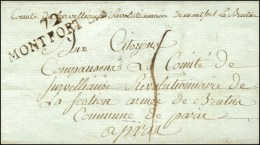 Comité de Surveillance Révolutionnaire de montfort le Brutus
72
MONTFORT
Aux Citoyens
Composans Le Comité de
Surveillance Révolutionnaire de
La Section armée de Brutus
Commune de paris
a paris